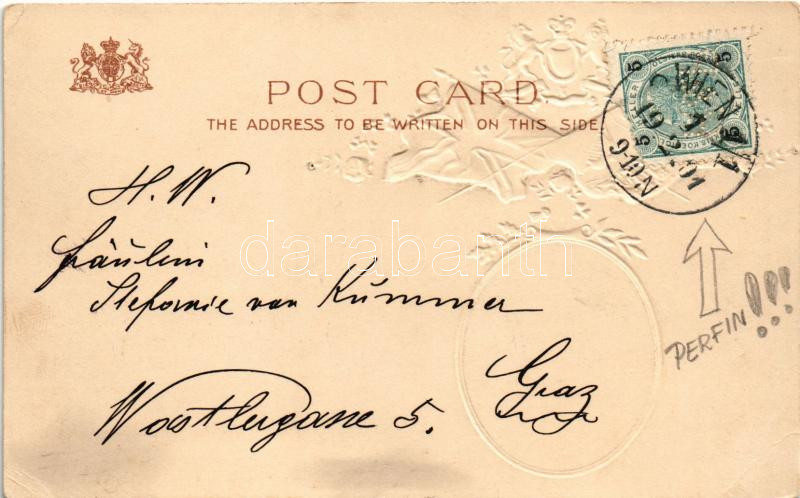 POST CARD.
THE ADDRESS TO BE WRITTEN ON THIS SIDE.
5 5
HELLER
WIEN 1/1
19 2 01
9-10N
H. W.
Fräulein
Stefanie von Kummer
Graz
Wastlergasse 5.
PERFIN!!!
darabanth